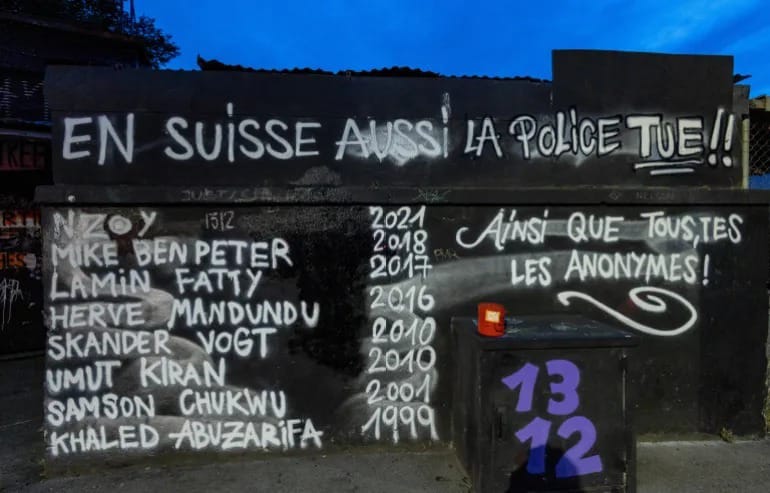 EN SUISSE AUSSI LA POLICE TUE!!
NZOY 1312 2021
MIKE BEN PETER 2018
LAMIN FATTY 2017
HERVE MANDUNDU 2016
SKANDER VOGT 2010
UMUT KIRAN 2010
SAMSON CHUKWU 2001
KHALED ABUZARIFA 1999
AiNSi QUE TOUS,TES
LES ANONYMES!
13
12